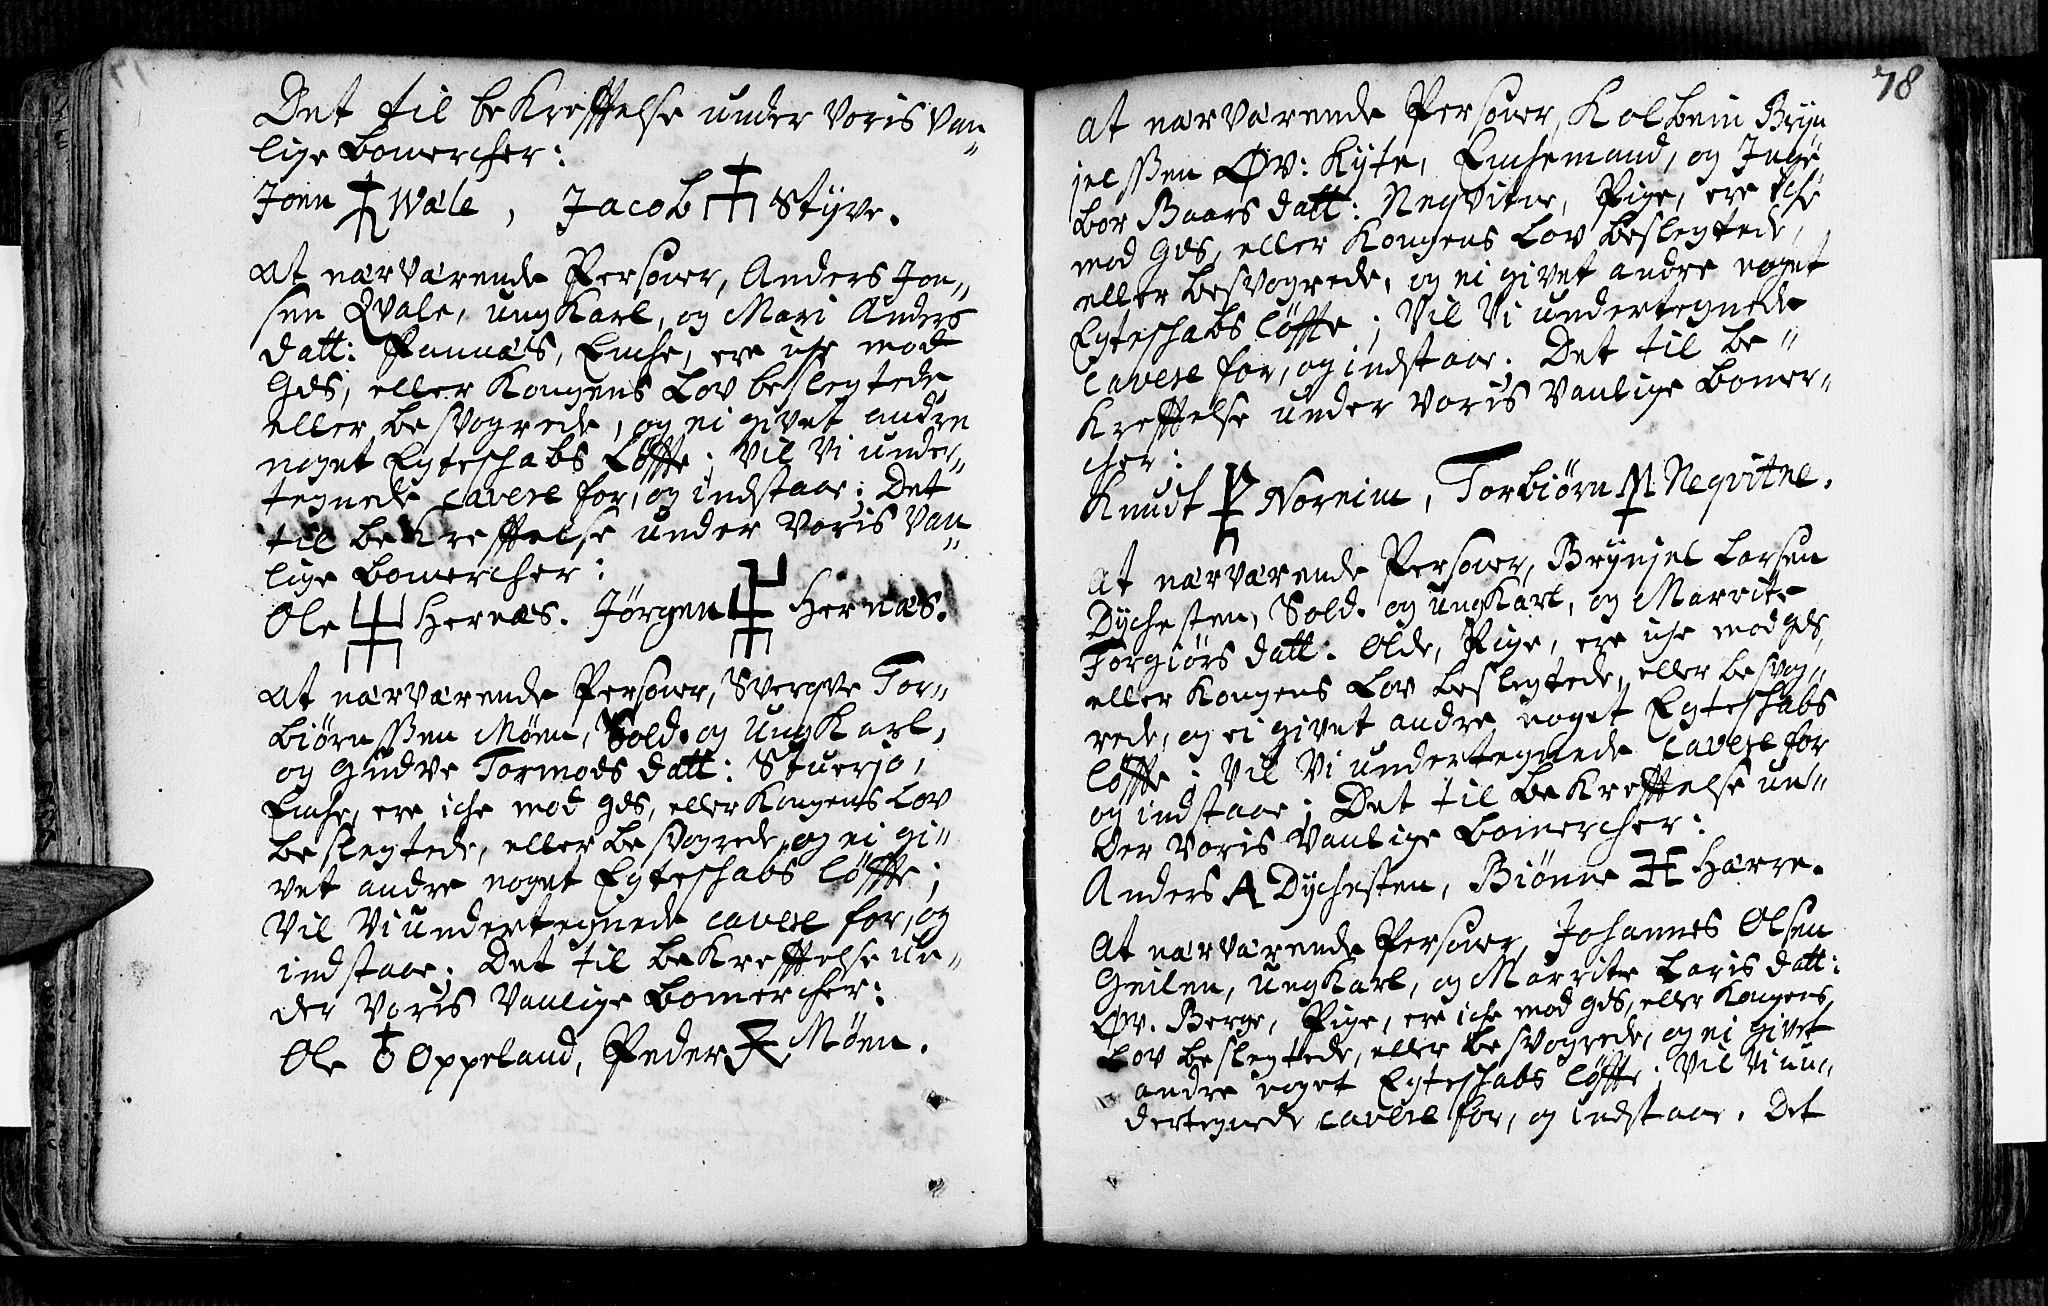 Det til bekrefftelse under voris van„
lige bomercher:
Joen Wæle, Jacob Styve.
At nærværende Persover, Anders Jon„
sen Qvale, ungkarl, og Mari Anders
datt: Pannæs, Enche, ere iche mod
Gds, eller Kongens Lov beslegtede
eller besvogrede, og ei givet andre
noget Egteschabs Løffte; Vil vi under„
tegnede cavere for, og indstaae; Det
til bekrefftelse under voris van„
lige bomercher:
Ole Hernæs. Jørgen Hernæs.
At nærværende Persover, Sverqve Tor„
biørnssen Møen, Sold. og ungkarl,
og Gudve Tormods datt: Stuersjo,
Enche, ere iche mod Gds, eller Kongens Lov
beslegtede, eller besvogrede, og ei gi„
vet andre noget Egteschabs løffte;
Vil vi undertegnede cavere for, og
indstaae. Det til bekrefftelse un„
der voris vanlige bomercher:
Ole Oppeland, Peder Møen.
78
At nærværende Persover, Kolbein Bryn
jelssen Øv: Kyte, Enchemand, og Inge
bor Baars datt: Neqvitne, Pige, ere iche
mod Gds, eller Kongens Lov beslegtede,
eller besvogrede, og ei givet andre noget
Egteschabs løffte; Vil vi undertegnede
cavere for, og indstaae. Det til be„
krefftelse under voris vanlige bomer„
cher:
Knudt Noreim, Torbiørn Neqvitne.
At nærværende Persover, Brynjel Larsen
Dychesten, Sold. og ungkarl, og Marrite
Torgiørs datt. Olde, Pige, ere iche mod Gds,
eller Kongens Lov beslegtede, eller besvog„
rede, og ei givet andre noget Egteschabs
løffte; Vil vi undertegnede cavere for
og indstaae; Det til bekrefftelse un„
der voris vanlige bomercher:
Anders Dychesten, Biønne Hærre.
At nærværende Persover, Johannes Olsen
Geilen, ungkarl, og Marrite Laris datt:
Øv. Berge, Pige, ere iche mod Gds, eller Kongens
Lov beslegtede, eller besvogrede, og ei givet
andre noget Egteschabs løffte; Vil vi un„
dertegnede cavere for, og indstaae. Det